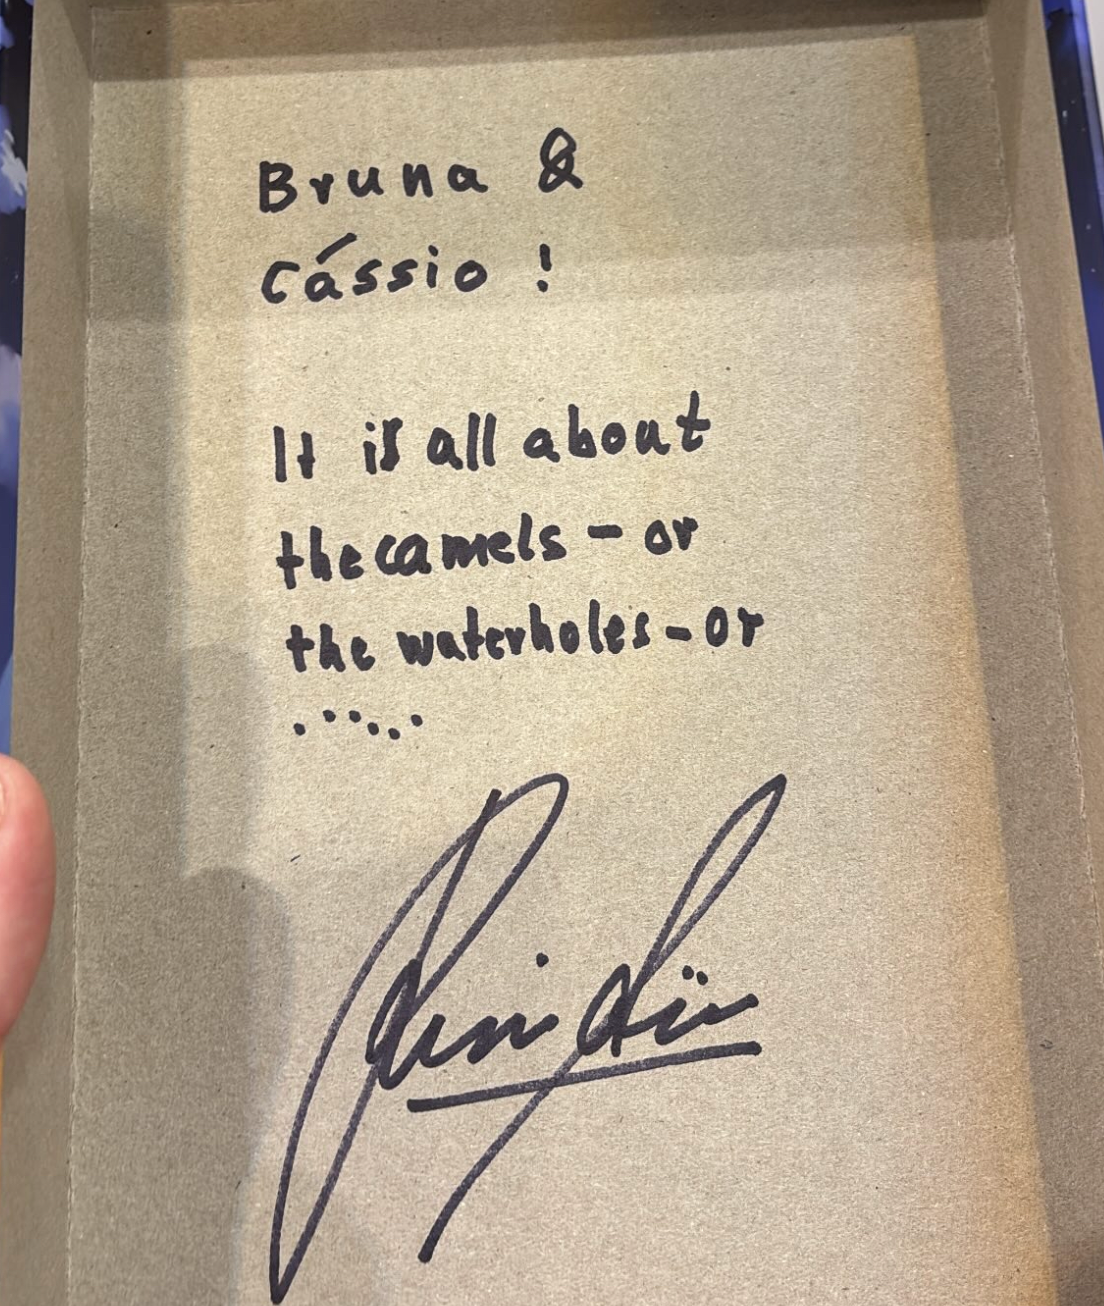 Bruna &
Cássio !
It is all about
the camels - or
the waterholes - or
......